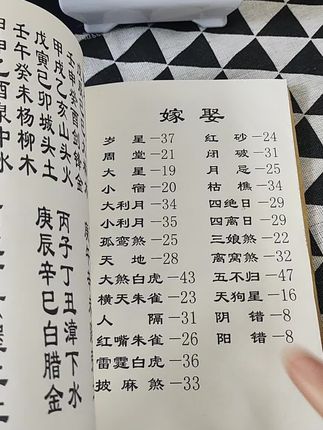 壬申癸酉剑锋金
甲戌乙亥山头火
丙子丁丑漳下水
戊寅己卯城头土
庚辰辛巳白腊金
壬午癸未杨柳木
甲申乙酉泉中水
嫁娶
岁星—37 红砂—24
周堂—21 闭破—31
大星—19 月忌—25
小宿—20 枯樵—34
大利月—34 四绝日—29
小利月—35 四离日—29
孤鸾煞—25 三娘煞—22
天地—28 离窝煞—32
大煞白虎—43 五不归—47
横天朱雀—23 天狗星—16
人隔—31 阴错—8
红嘴朱雀—26 阳错—8
雷霆白虎—36
披麻煞—33